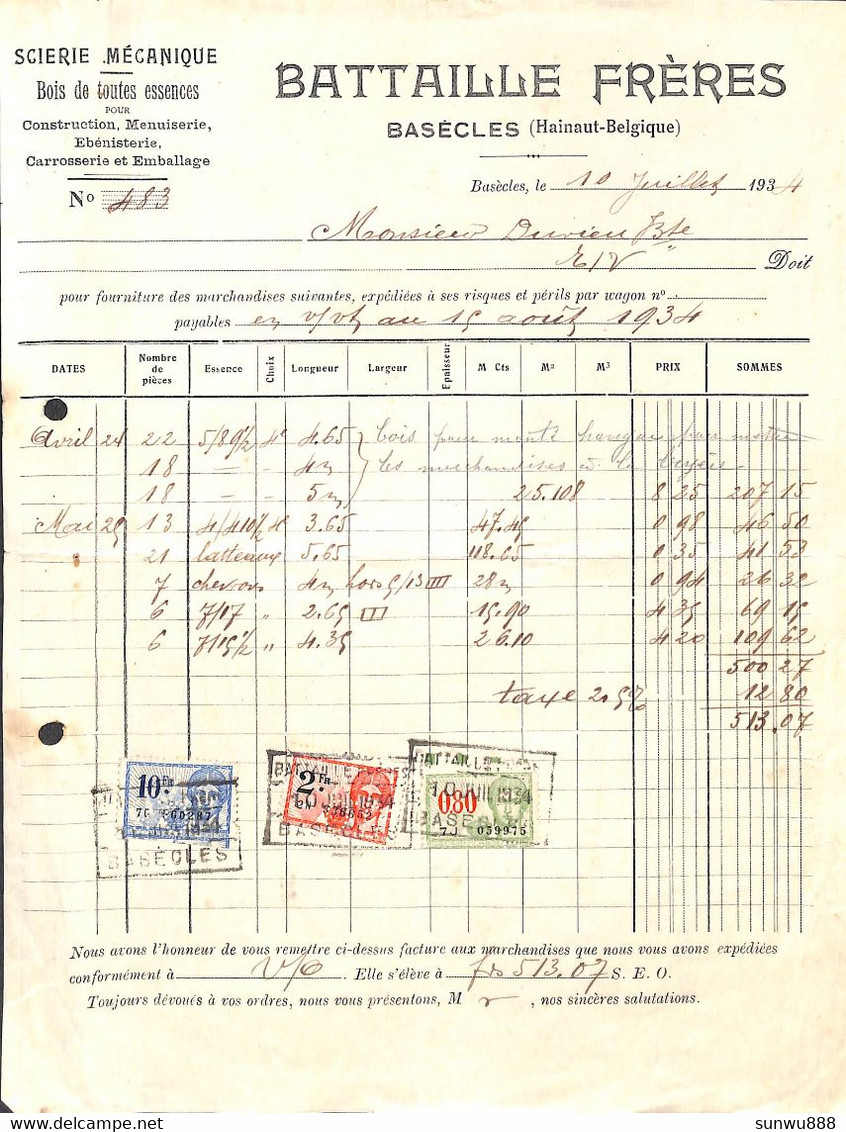 SCIERIE MÉCANIQUE
Bois de toutes essences
POUR
Construction, Menuiserie,
Ebénisterie,
Carrosserie et Emballage
No 483
BATTAILLE FRÈRES
BASÈCLES (Hainaut-Belgique)
Basècles, le 10 Juillet 1934
Monsieur Durieu Bte
E/V Doit
pour fourniture des marchandises suivantes, expédiées à ses risques et périls par wagon no
payables en v/vt au 15 août 1934
DATES Nombre de pièces Essence Choix Longueur Largeur Epaisseur M Cts M2 M3 PRIX SOMMES
Avril 24 22 5/8 9½ 4e 4.65 bois pour monté hangar pour mettre
18 – – 4m les marchandises
18 – – 5m 25.108 8 25 207 15
Mai 25 13 4/4 10½ 4e 3.65 47.45 0 98 46 50
21 latteaux 5.65 118.65 0 35 41 53
7 chevrons 4m hors 5/13 III 28m 0 94 26 32
6 7/17 " 2.65 III 15.90 4 35 69 15
6 7/15½ " 4.35 26.10 4 20 109 62
500 27
taxe 2.5% 12 80
513.07
10 Fr 2 Fr 0F80
7G 660287 7J 059975
BATTAILLE FRÈRES
10 JUIL 1934
BASÈCLES
Nous avons l'honneur de vous remettre ci-dessus facture aux marchandises que nous vous avons expédiées
conformément à V/O. Elle s'élève à frs 513.07 S. E. O.
Toujours dévoués à vos ordres, nous vous présentons, M r, nos sincères salutations.
sunwu888